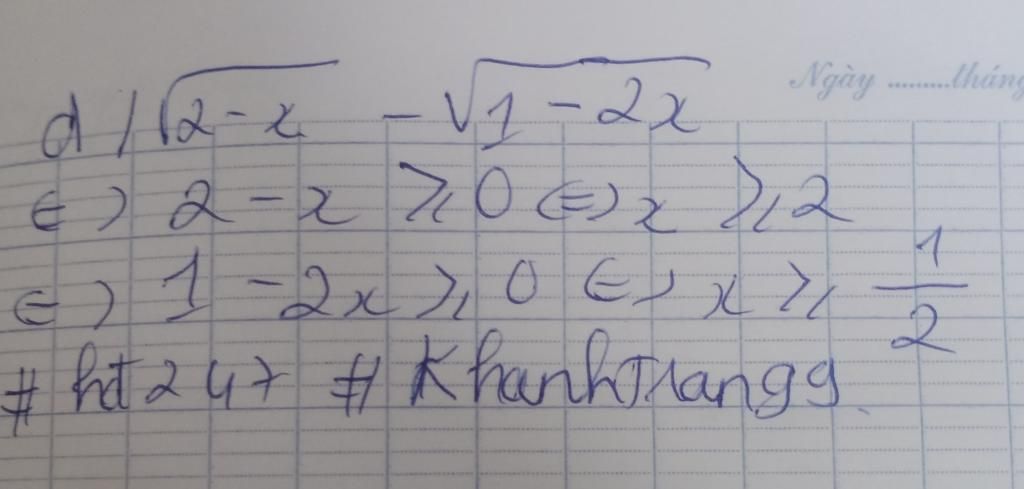 Ngày ..........tháng
d/ √2-x - √1-2x
⇔ 2-x ⩾ 0 ⇔ x ⩾ 2
⇔ 1-2x ⩾ 0 ⇔ x ⩾ 1/2
# hdt247 # KhanhTrang9